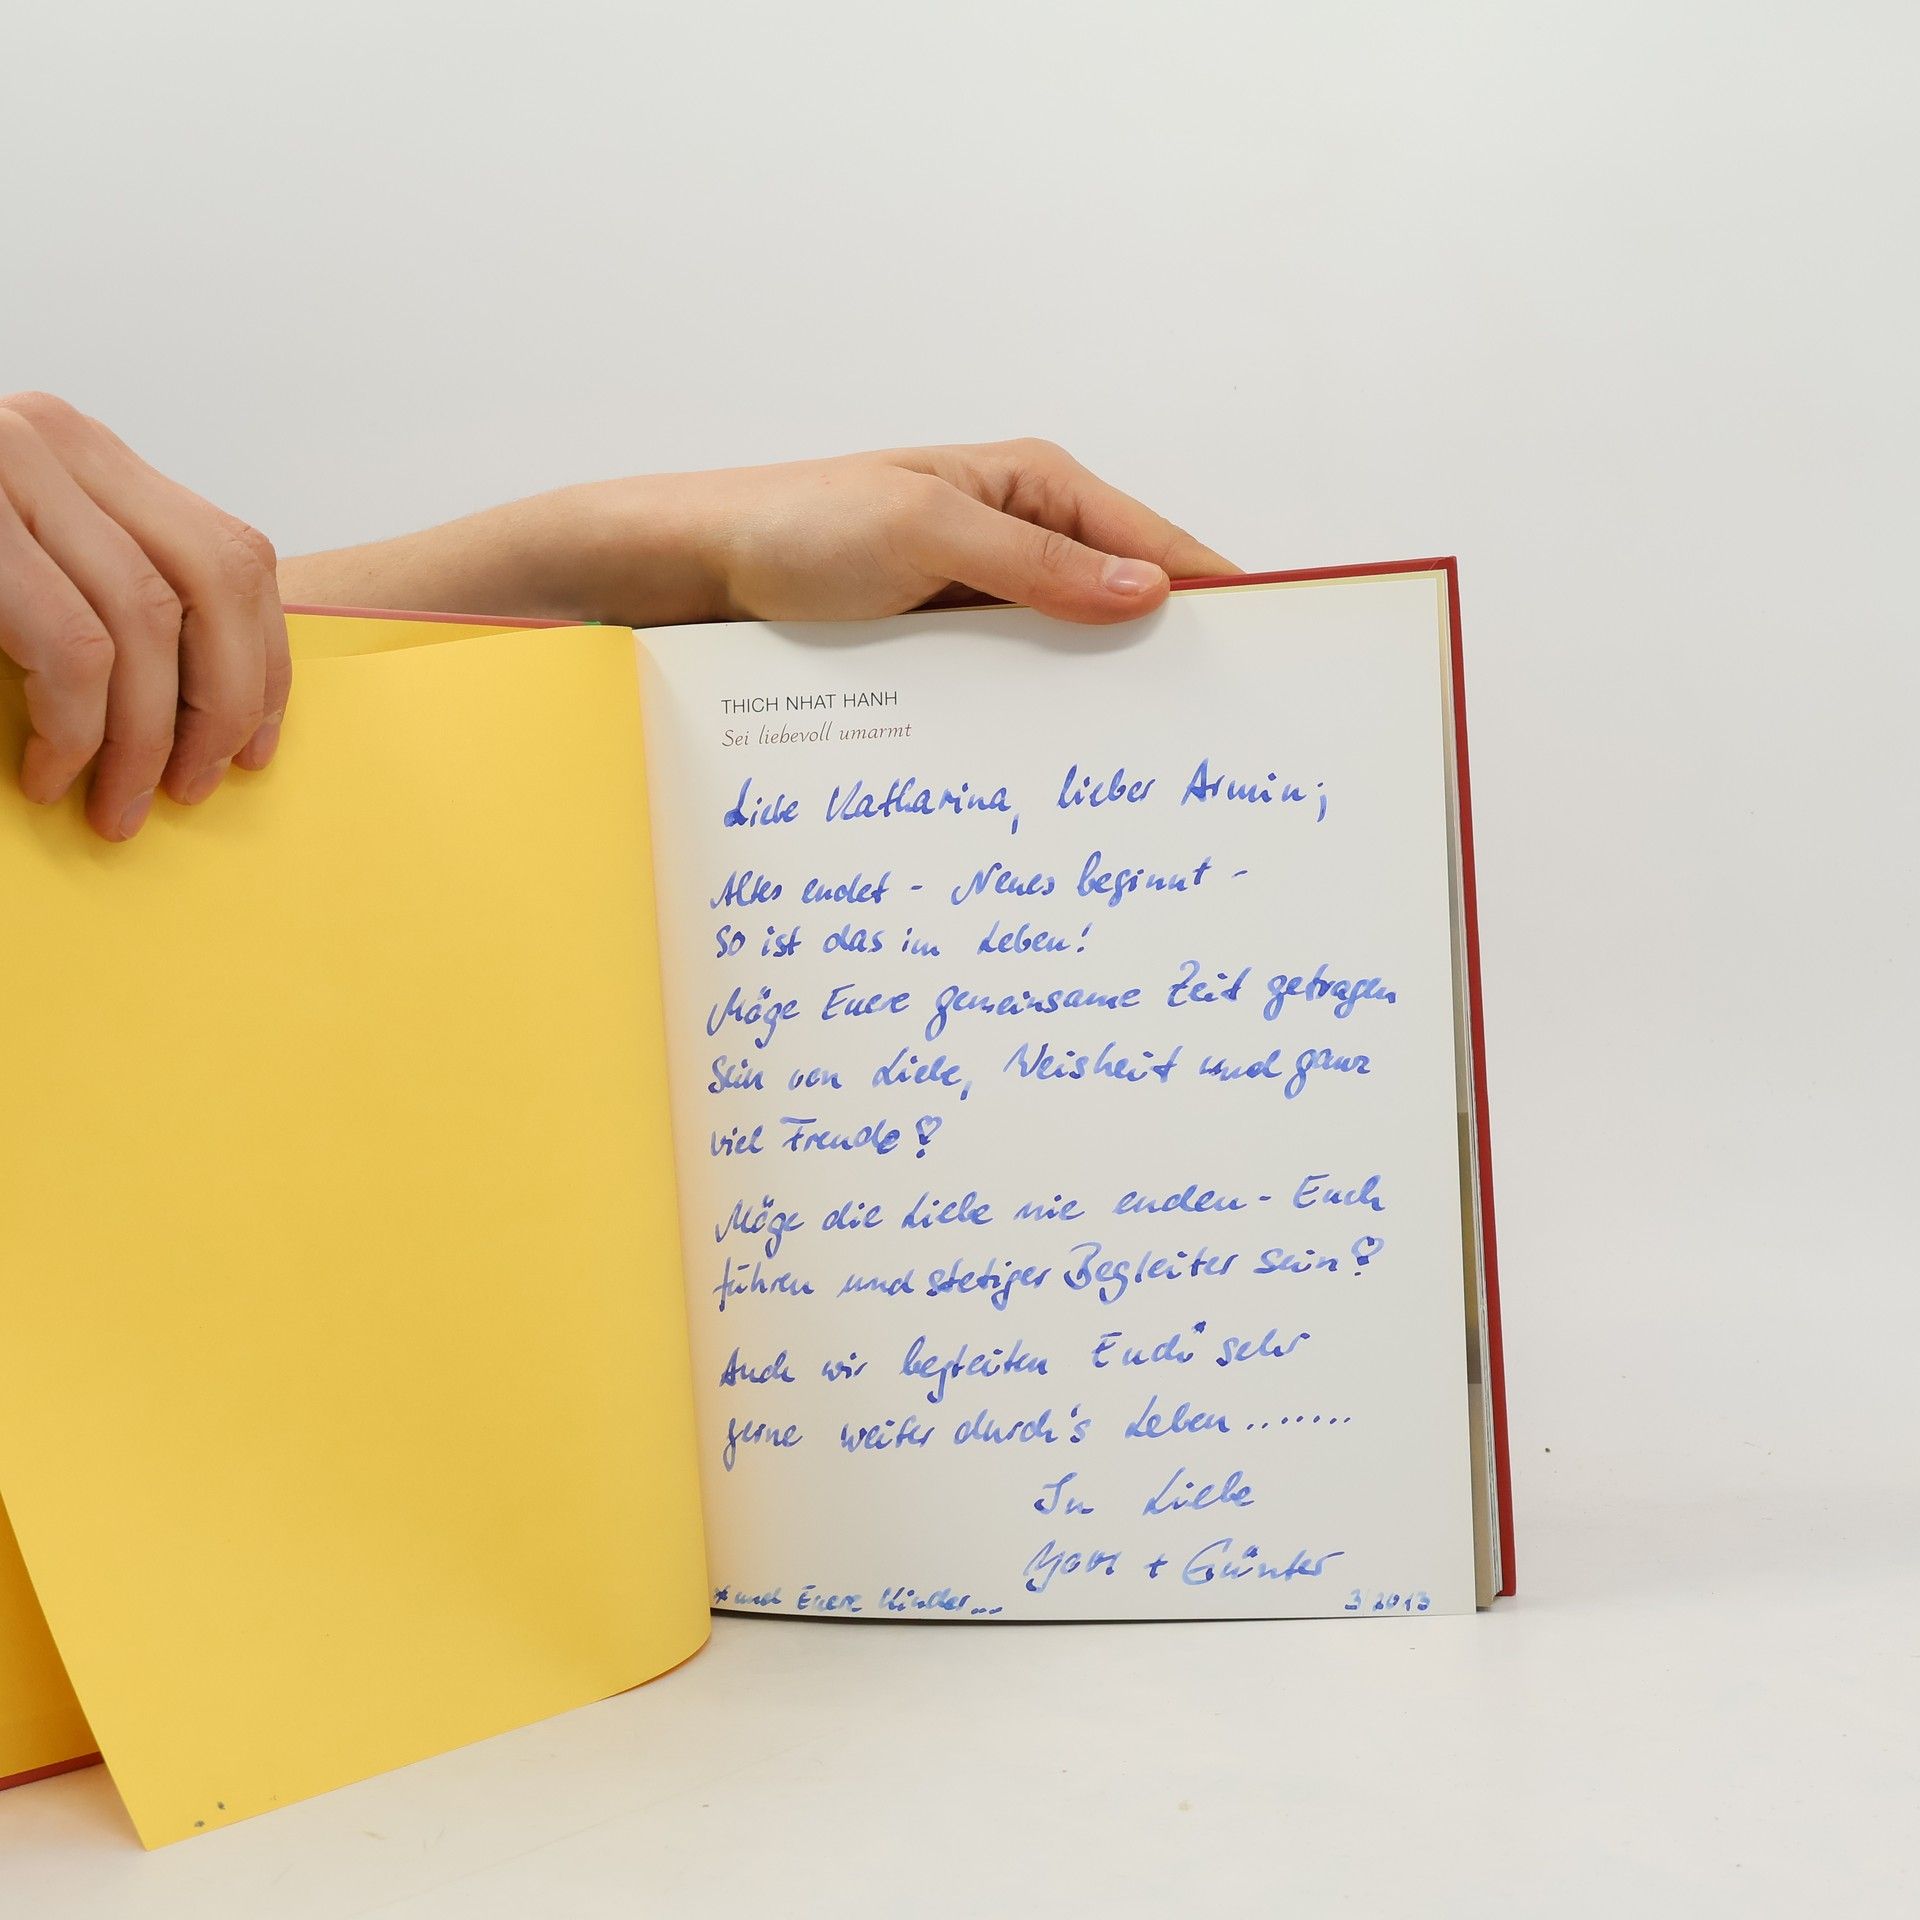 THICH NHAT HANH
Sei liebevoll umarmt
Liebe Katharina, lieber Armin;
Altes endet - Neues beginnt -
So ist das im Leben!
Möge Euere gemeinsame Zeit getragen
sein von Liebe, Weisheit und ganz
viel Freude
Möge die Liebe nie enden - Euch
führen und stetiger Begleiter sein
Auch wir begleiten Euch* sehr
gerne weiter durch's Leben.......
In Liebe
+ Günter
* und Euere Kinder...
3/2013